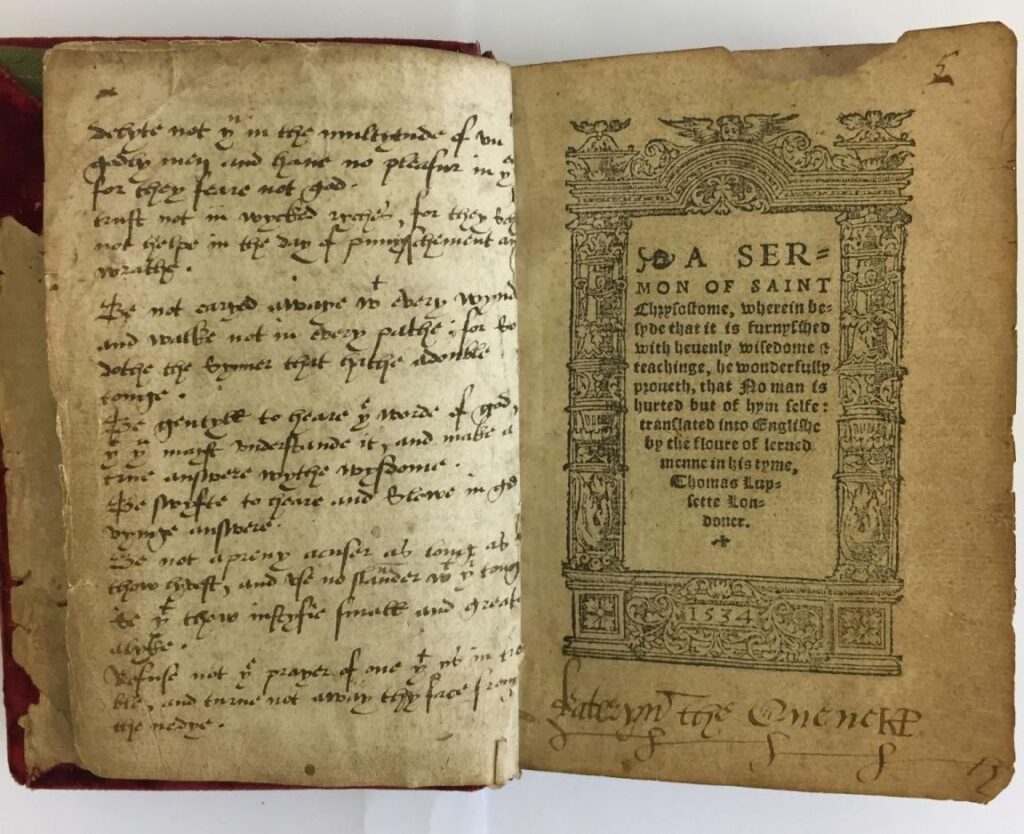 delyte not yͧ in the multytude of vn
godly men and haue no pleasur in yͤ
for they feare not god.
trust not in wycked ryches, for they
not helpe in the day of punyschement a
wrathe.
Be not caryed awaye wͭ euery wynd
and walke not in euery pathe : for so
dothe the synner that hathe a double
tonge.
Be gentyll to heare yͤ worde of god,
yͭ yͧ mayst vnderstande it, and make a
true answere wythe wysdome.
Be swyfte to heare and slowe in ge
vynge answere.
Be not a preuy acuser as long as
thow lyuest, and vse no slander wͭ yͭ tong
thow iustyfie small and greate
alyke.
Refuse not yͤ prayer of one yͭ ys in tro
ble, and turne not away thy face from
the nedye.
5
A SER=
MON OF SAINT
Chrysostome, wherein be=
syde that it is furnysshed
with heuenly wisedome &
teachinge, he wonderfully
proueth, that No man is
hurted but of hym selfe:
translated into Englishe
by the floure of lerned
menne in his tyme,
Thomas Lup=
sette Lon=
doner.
1534
Kateryn the Quene KP